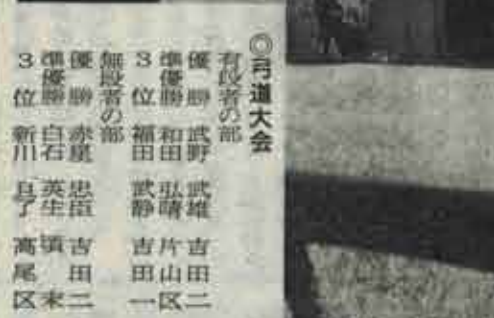 ◎弓道大会
有段者の部
優勝 武野 武雄 吉田二
準優勝 和田 弘晴 片山区
3位 福田 武静 吉田一
無段者の部
優勝 赤星 忠臣 吉田二
準優勝 白石 英生 頃末
3位 新川 良了 高尾区